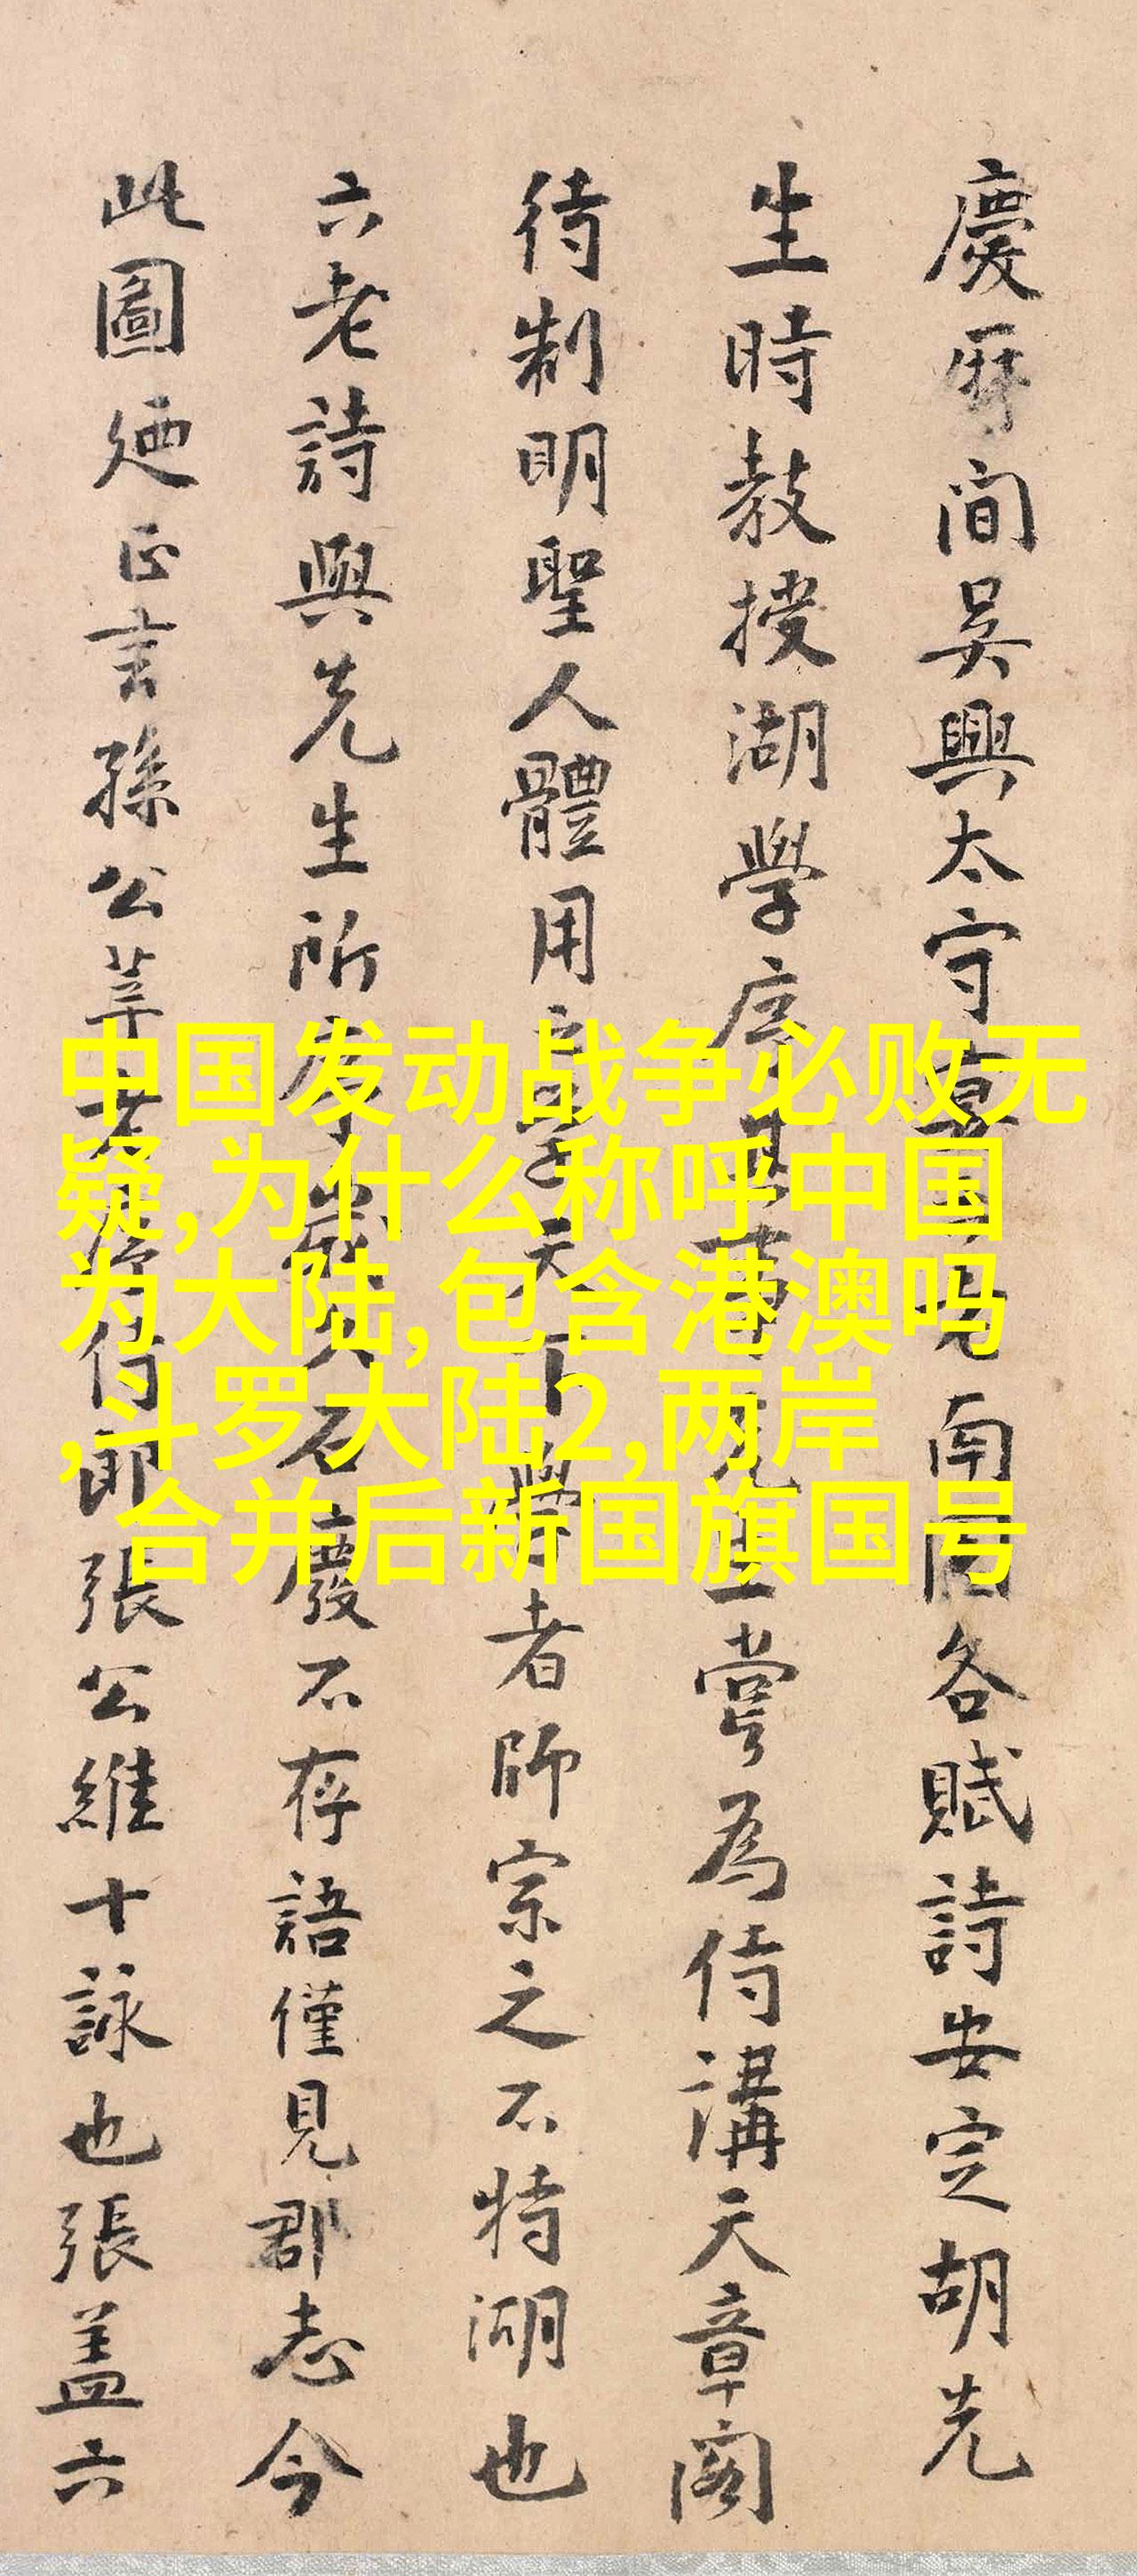 慶曆間吳興太守馬 南園各賦詩安定胡先
生時教授湖學序其事先生嘗為侍講天章閣
待制明聖人體用之學天下學者師宗之不特湖也
六老詩與先生所序歲久石廢不存語僅見郡志今
此圖廼正言孫公莘老侍郎張公維十詠也張蓋六
中国发动战争必败无
疑,为什么称呼中国
为大陆,包含港澳吗
,斗罗大陆2,两岸
合并后新国旗国号